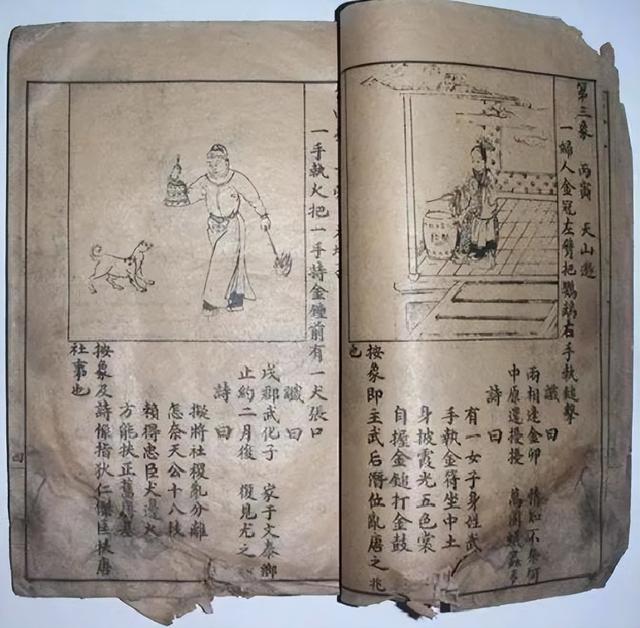 第三象 丙寅 天山遯
一婦人金冠左臂把鸚鵡右手執鎚擊
讖曰
兩相逢金卯 情知不奈何
中原還擾擾 萬國
詩曰
有一女子身姓武
手執金符坐中土
身披霞光五色裳
自握金鎚打金鼓
按象即主武后僭位亂唐之兆
也
一手執火把一手持金鐘前有一犬張口
讖曰
戌郡武化子 家子文泰鄉
止約二月後 復見尤之
詩曰
擬將社稷亂分離
怎奈天公十八枝
賴得忠臣犬邊火
方能扶正舊基
按象及詩係指狄仁傑匡扶唐
社事也
四